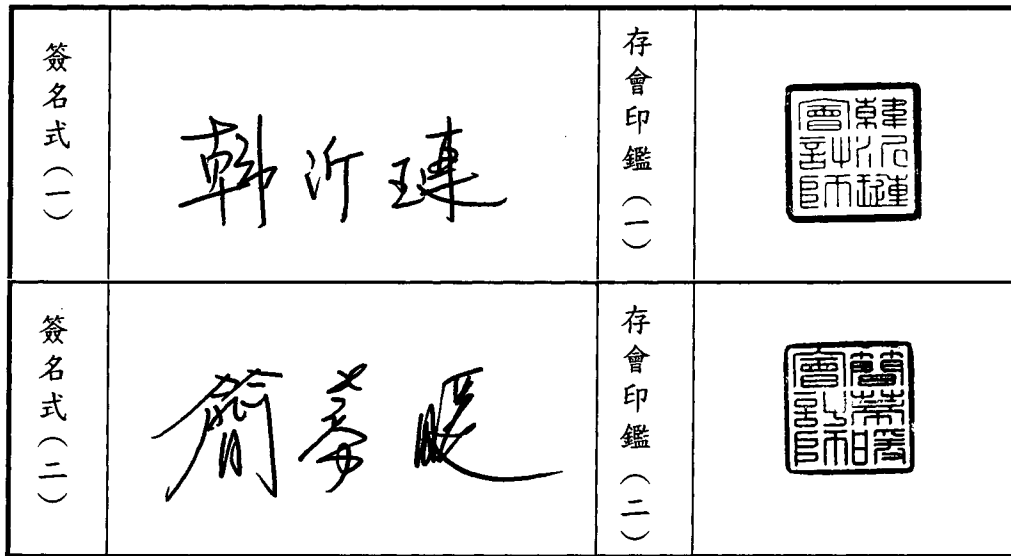 簽名式（一）
韓沂璉
存會印鑑（一）
韓沂璉會計師
簽名式（二）
簡蒂暖
存會印鑑（二）
簡蒂暖會計師